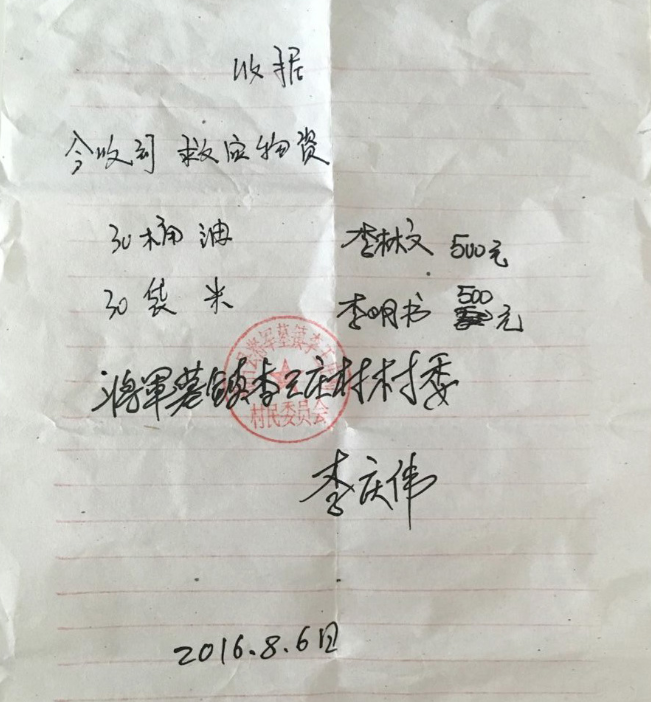 收据
今收到 救应物资
30桶油 李林文 500元
30袋米 李明书 500元
将军墓镇李石庄村村委
村民委员会
李庆伟
2016.8.6日